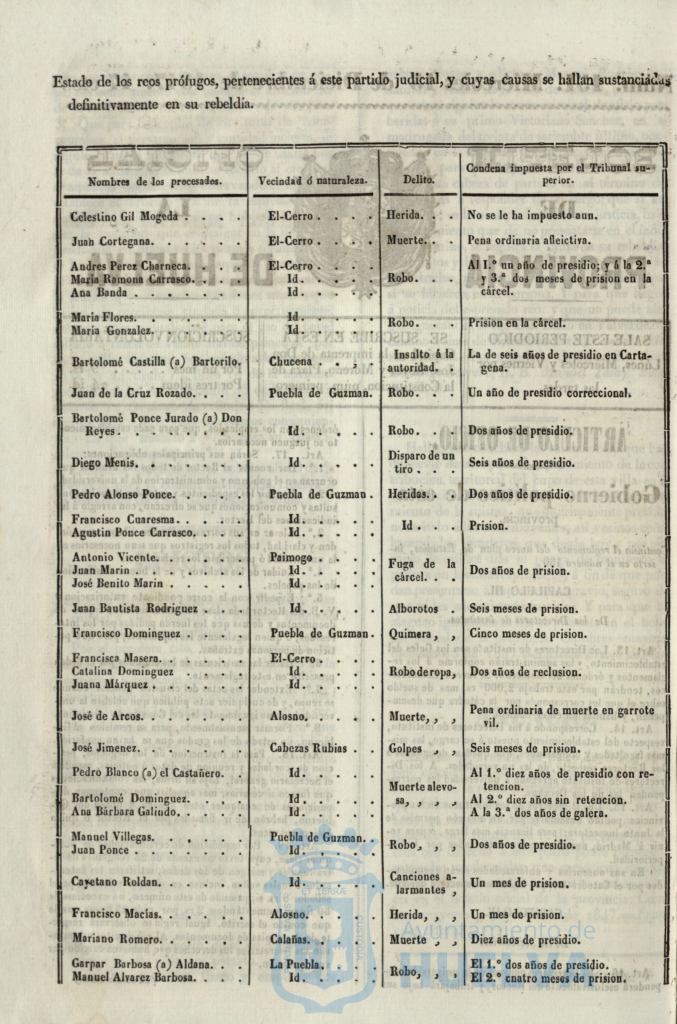 Estado de los reos prófugos, pertenecientes á este partido judicial, y cuyas causas se hallan sustanciadas
definitivamente en su rebeldia.
Nombres de los procesados. Vecindad ó naturaleza. Delito. Condena impuesta por el Tribunal su-
perior.
Celestino Gil Mogeda . . . . El-Cerro . . . . Herida. . . No se le ha impuesto aun.
Juan Cortegana. . . . . . El-Cerro . . . . Muerte. . . Pena ordinaria afleictiva.
Andres Perez Charneca. . . . El-Cerro . . . . Robo. . . Al 1.º un año de presidio; y á la 2.ª
Maria Ramona Carrasco. . . . Id. . . . . y 3.ª dos meses de prision en la
Ana Banda . . . . . . . Id. . . . . cárcel.
Maria Flores. . . . . . Id. . . . . Robo. . . Prision en la cárcel.
Maria Gonzalez. . . . . . Id. . . . .
Bartolomé Castilla (a) Bartorilo. Chucena . . , . Insalto á la La de seis años de presidio en Carta-
autoridad. . gena.
Juan de la Cruz Rozado. . . . Puebla de Guzman. Robo. . . Un año de presidio correccional.
Bartolomé Ponce Jurado (a) Don
Reyes. . . . . . . Id. . . . . Robo. . . Dos años de presidio.
Diego Menis. . . . . . . Id. . . . . Disparo de un
tiro . . . Seis años de presidio.
Pedro Alonso Ponce. . . . . Puebla de Guzman. Heridas. . . Dos años de presidio.
Francisco Cuaresma. . . . . Id. . . . . Id . . . Prision.
Agustin Ponce Carrasco. . . . Id. . . . .
Antonio Vicente. . . . . . Paimogo . . . . Fuga de la
Juan Marin . . . . . . Id. . . . . cárcel. . . Dos años de prision.
José Benito Marin . . . . . Id. . . . .
Juan Bautista Rodriguez . . . Id. . . . . Alborotos . Seis meses de prision.
Francisco Dominguez . . . . Puebla de Guzman. Quimera, , Cinco meses de prision.
Francisca Masera. . . . . . El-Cerro . . . . Robo de ropa, Dos años de reclusion.
Catalina Dominguez . . . . Id. . . . .
Juana Márquez . . . . . . Id. . . . .
José de Arcos. . . . . . Alosno. . . . . Muerte, , , Pena ordinaria de muerte en garrote
vil.
José Jimenez. . . . . . Cabezas Rubias . . Golpes , , Seis meses de prision.
Pedro Blanco (a) el Castañero. . Id. . . . . Muerte alevo- Al 1.º diez años de presidio con re-
tencion.
Bartolomé Dominguez. . . . Id. . . . . sa, , , , Al 2.º diez años sin retencion.
Ana Bárbara Galindo. . . . Id. . . . . A la 3.ª dos años de galera.
Manuel Villegas. . . . . . Puebla de Guzman. . Robo, , , Dos años de presidio.
Juan Ponce . . . . . . Id. . . . .
Cayetano Roldan. . . . . . Id. . . . . Canciones a-
larmantes , Un mes de prision.
Francisco Macias. . . . . . Alosno. . . . . Herida, , , Un mes de prision.
Mariano Romero. . . . . . Calañas. . . . . Muerte , , Diez años de presidio.
Garpar Barbosa (a) Aldana. . . La Puebla. . . . Robo, , , El 1.º dos años de presidio.
Manuel Alvarez Barbosa. . . . Id. . . . . El 2.º cnatro meses de prision.
Ayuntamiento de
HUELVA